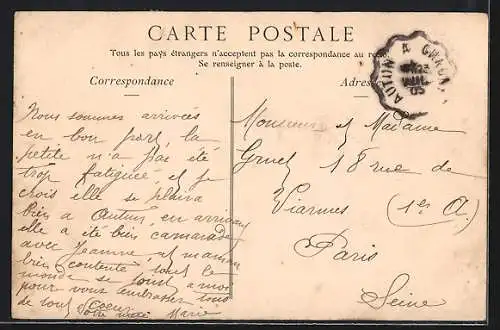 CARTE POSTALE
Tous les pays étrangers n'acceptent pas la correspondance au recto.
Se renseigner à la poste.
Correspondance
Adres
AUTUN A CHAGNY
05
Nous sommes arrivées
en bon port, la
petite n'a pas été
trop fatiguée, et je
crois elle se plaira
bien a Autun, en arrivant
elle a été bien camarade
avec Jeanne, et maman
bien contente, tout le
monde se joint a moi
pour vous embrasser tous
de tout coeur
Votre Marie
Monsieur et Madame
Gruet 18 rue de
Viarmes (1er A)
Paris
Seine